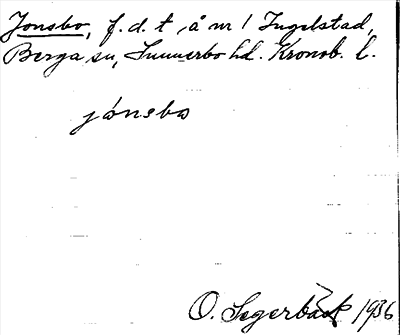 Jonsbo, f. d. t, å nr 1 Ingelstad,
Berga sn, Sunnerbo hd. Kronob. l.
jónsbo
O. Segerbäck 1936